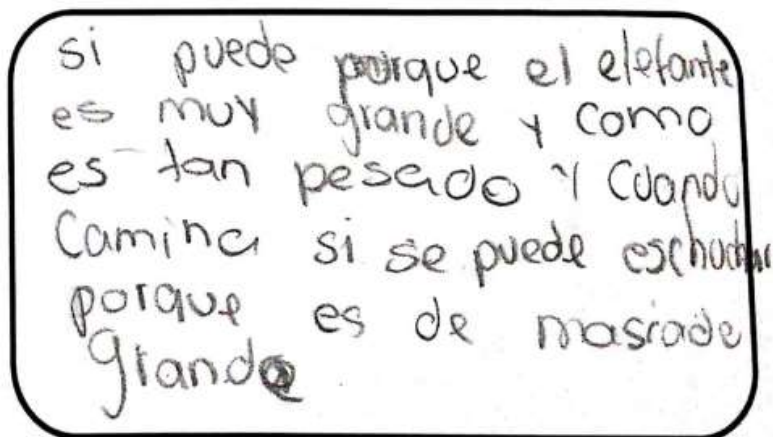 si puede porque el elefante
es muy grande y como
es tan pesado y cuando
Camina si se puede eschuchar
porque es de masiade
grande